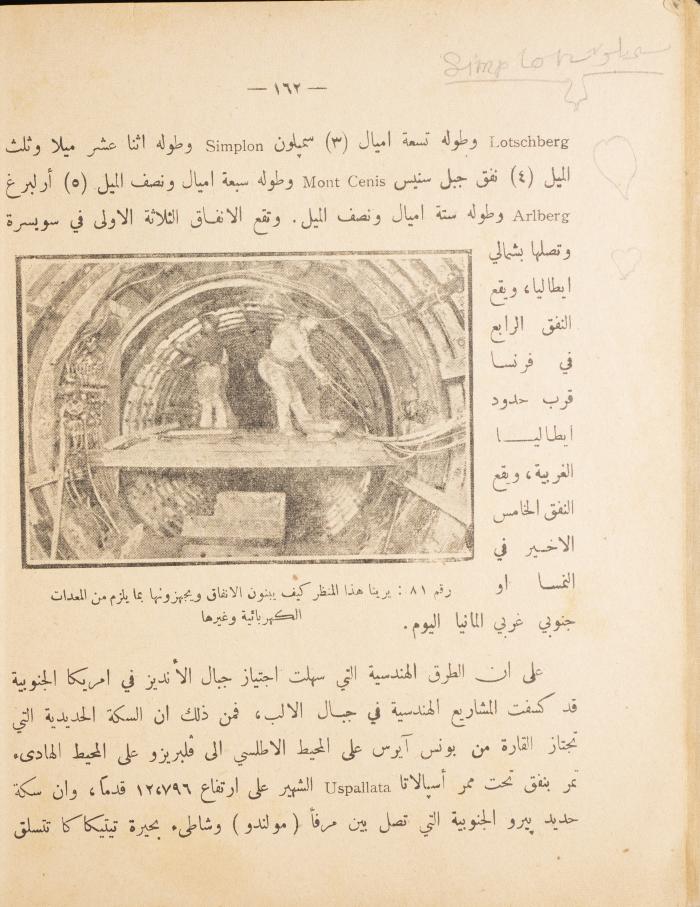 Simplon سمپلون
— ١٦٢ —
Lotschberg وطوله تسعة اميال (٣) سمپلون Simplon وطوله اثنا عشر ميلا وثلث
الميل (٤) نفق جبل سنيس Mont Cenis وطوله سبعة اميال ونصف الميل (٥) أرلبرغ
Arlberg وطوله ستة اميال ونصف الميل. وتقع الانفاق الثلاثة الاولى في سويسرة
وتصلها بشمالي
ايطاليا، ويقع
النفق الرابع
في فرنسا
قرب حدود
ايطاليا
الغربية، ويقع
النفق الخامس
الاخير في
النمسا او
جنوبي غربي المانيا اليوم.
رقم ٨١ : يرينا هذا المنظر كيف يبنون الانفاق ويجهزونها بما يلزم من المعدات
الكهربائية وغيرها
على ان الطرق الهندسية التي سهلت اجتياز جبال الأنديز في امريكا الجنوبية
قد كسفت المشاريع الهندسية في جبال الالب، فمن ذلك ان السكة الحديدية التي
تجتاز القارة من بونس آيرس على المحيط الاطلسي الى ڤلبريزو على المحيط الهادىء
تمر بنفق تحت ممر أسپالاتا Uspallata الشهير على ارتفاع ١٢،٧٩٦ قدماً، وان سكة
حديد پيرو الجنوبية التي تصل بين مرفأ (مولندو) وشاطىء بحيرة تيتيكاكا تتسلق